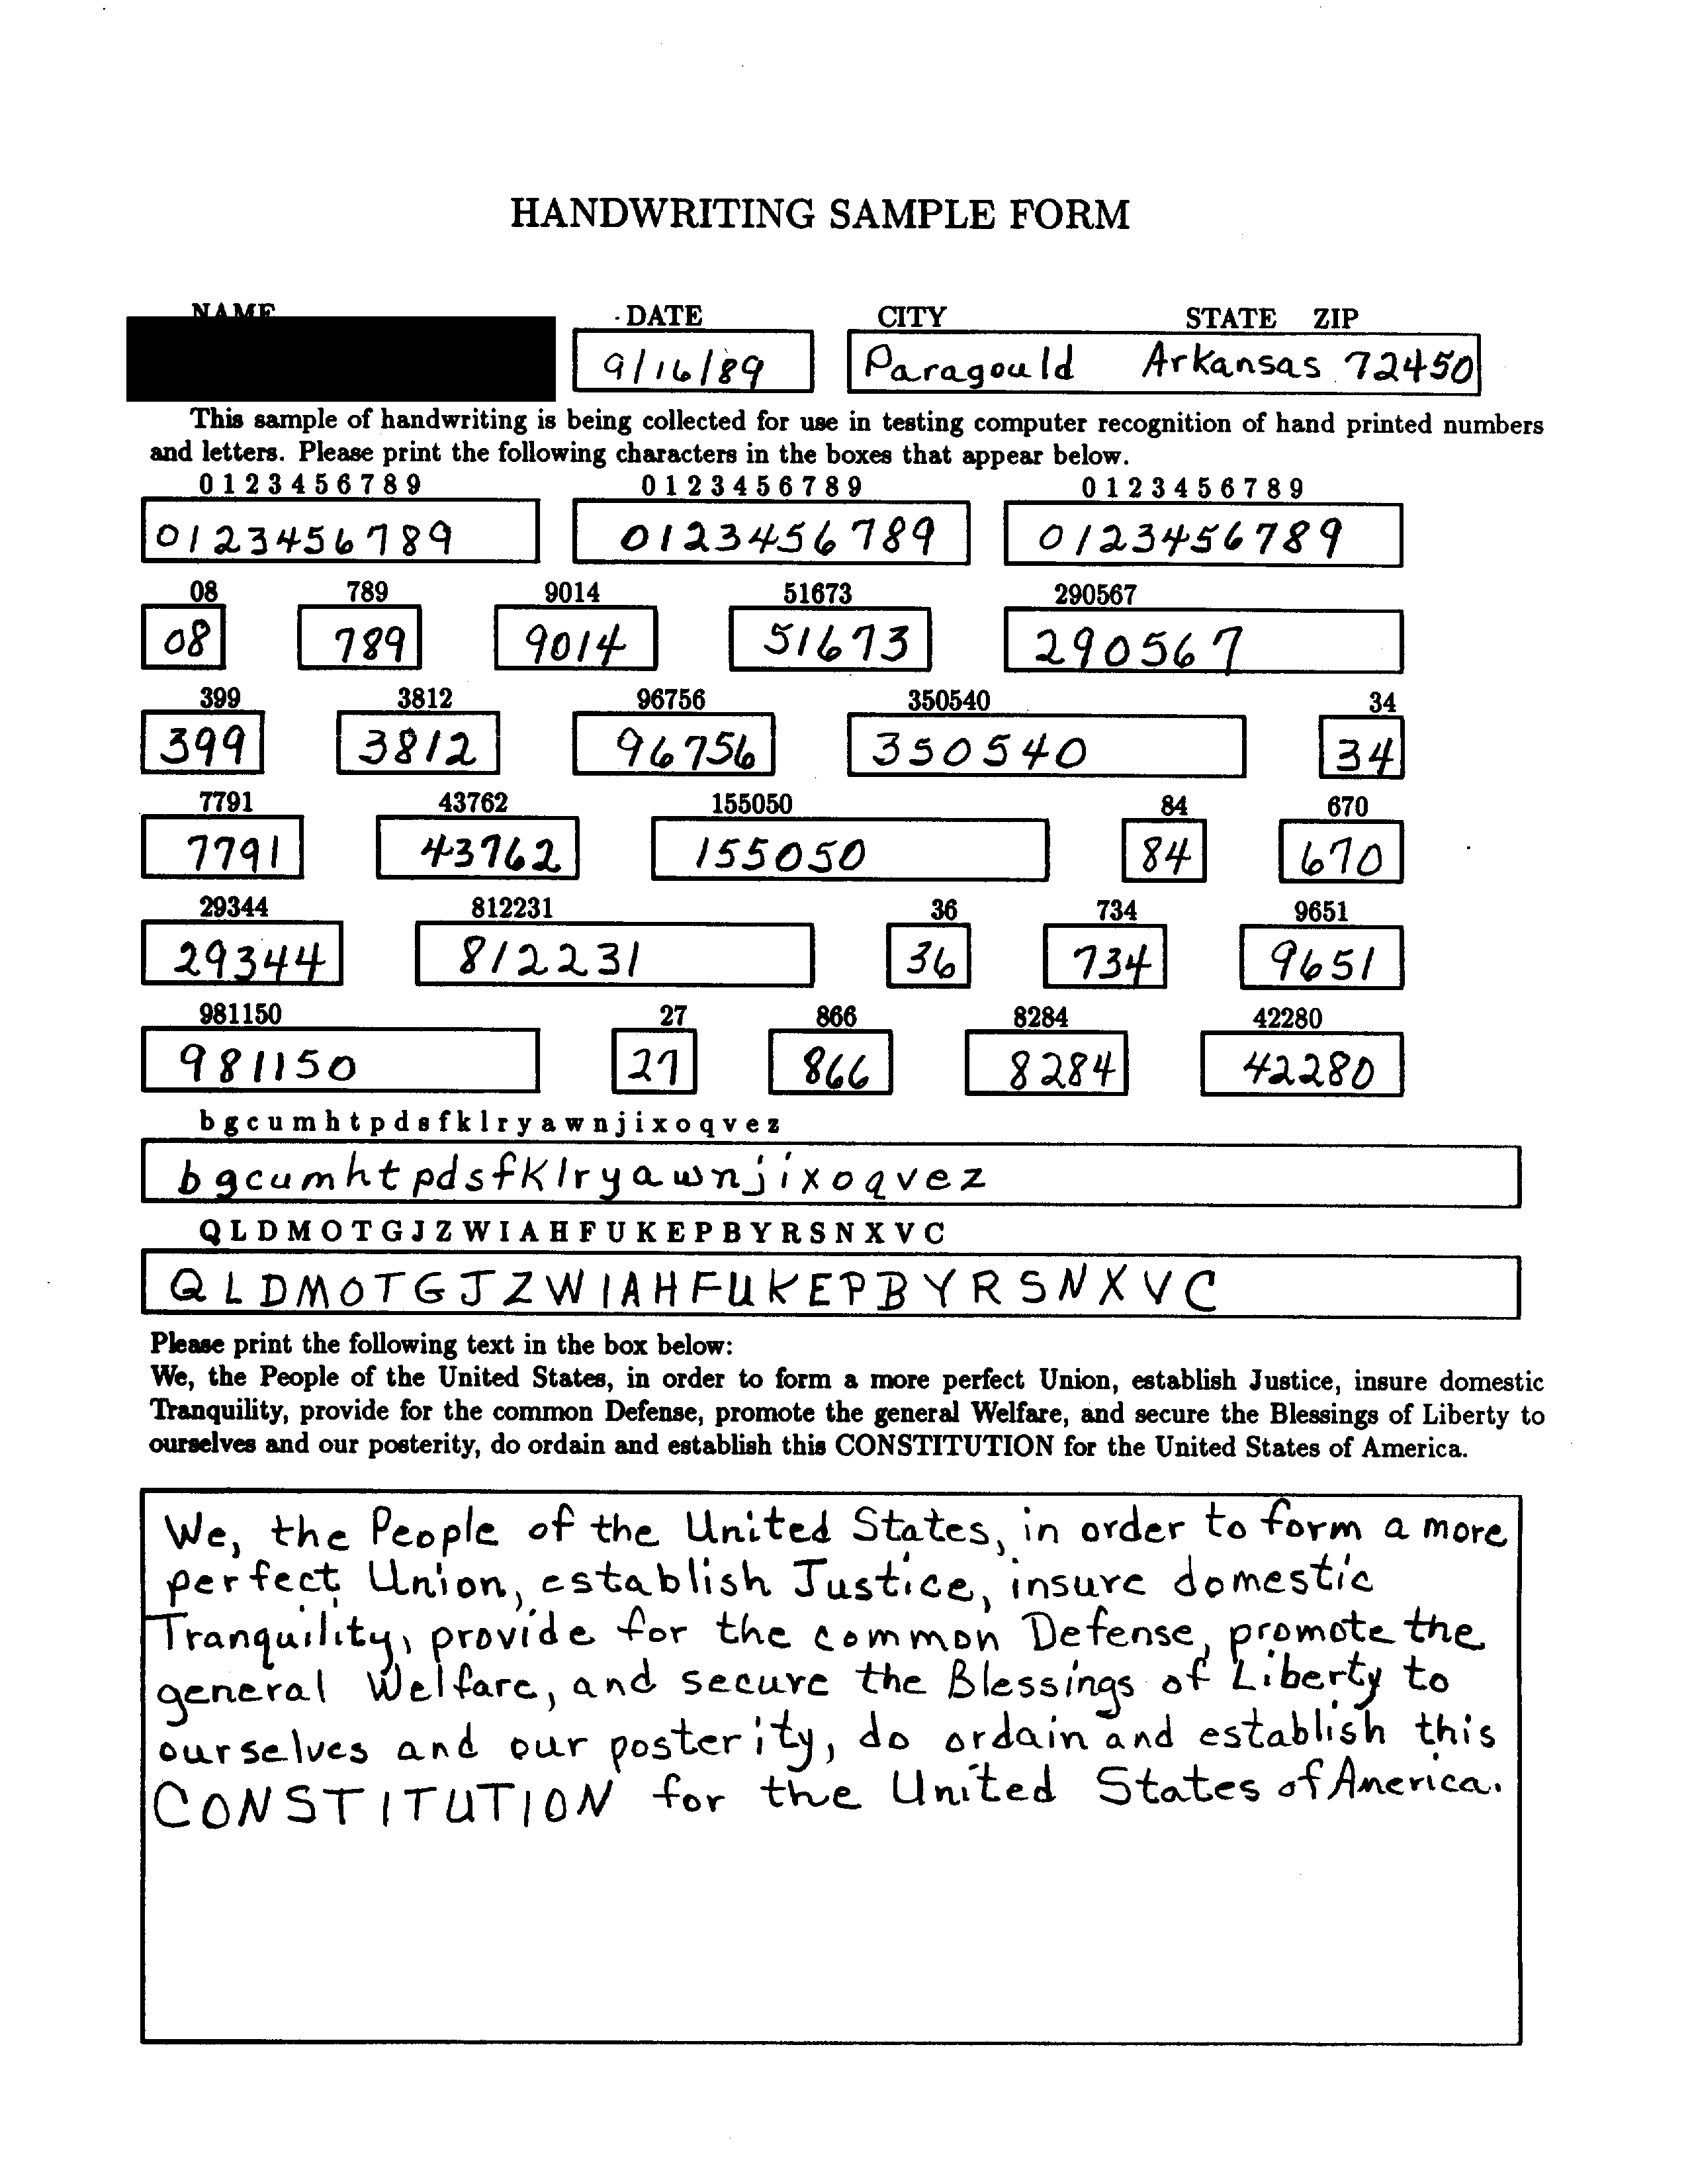 HANDWRITING SAMPLE FORM
NAME DATE CITY STATE ZIP
9/16/89 Paragould Arkansas 72450
This sample of handwriting is being collected for use in testing computer recognition of hand printed numbers
and letters. Please print the following characters in the boxes that appear below.
0 1 2 3 4 5 6 7 8 9 0 1 2 3 4 5 6 7 8 9 0 1 2 3 4 5 6 7 8 9
0123456789 0123456789 0123456789
08 789 9014 51673 290567
08 789 9014 51673 290567
399 3812 96756 350540 34
399 3812 96756 350540 34
7791 43762 155050 84 670
7791 43762 155050 84 670
29344 812231 36 734 9651
29344 812231 36 734 9651
981150 27 866 8284 42280
981150 27 866 8284 42280
b g c u m h t p d s f k l r y a w n j i x o q v e z
bgcumhtpdsfklryawnjixoqvez
Q L D M O T G J Z W I A H F U K E P B Y R S N X V C
QLDMOTGJZWIAHFUKEPBYRSNXVC
Please print the following text in the box below:
We, the People of the United States, in order to form a more perfect Union, establish Justice, insure domestic
Tranquility, provide for the common Defense, promote the general Welfare, and secure the Blessings of Liberty to
ourselves and our posterity, do ordain and establish this CONSTITUTION for the United States of America.
We, the People of the United States, in order to form a more
perfect Union, establish Justice, insure domestic
Tranquility, provide for the common Defense, promote the
general Welfare, and secure the Blessings of Liberty to
ourselves and our posterity, do ordain and establish this
CONSTITUTION for the United States of America.